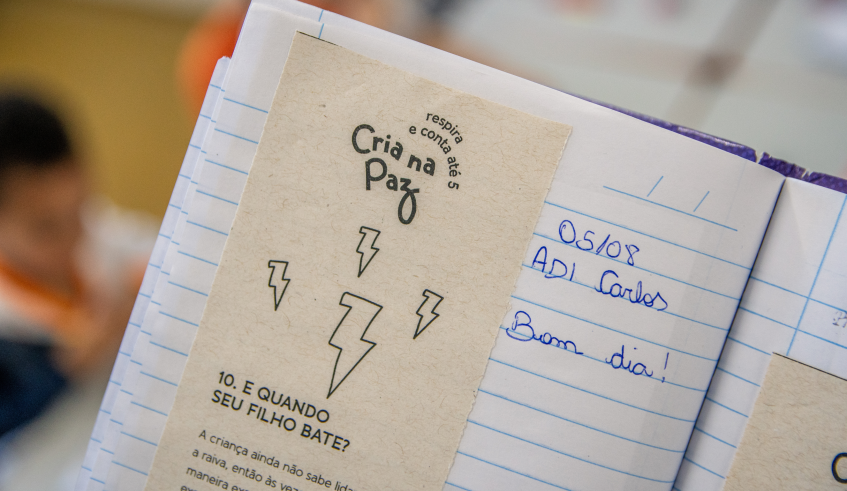 respira
e conta até 5
Cria na
Paz
10. E QUANDO
SEU FILHO BATE?
A criança ainda não sabe
a raiva, então às
maneira
05/08
ADI Carlos
Bom dia!